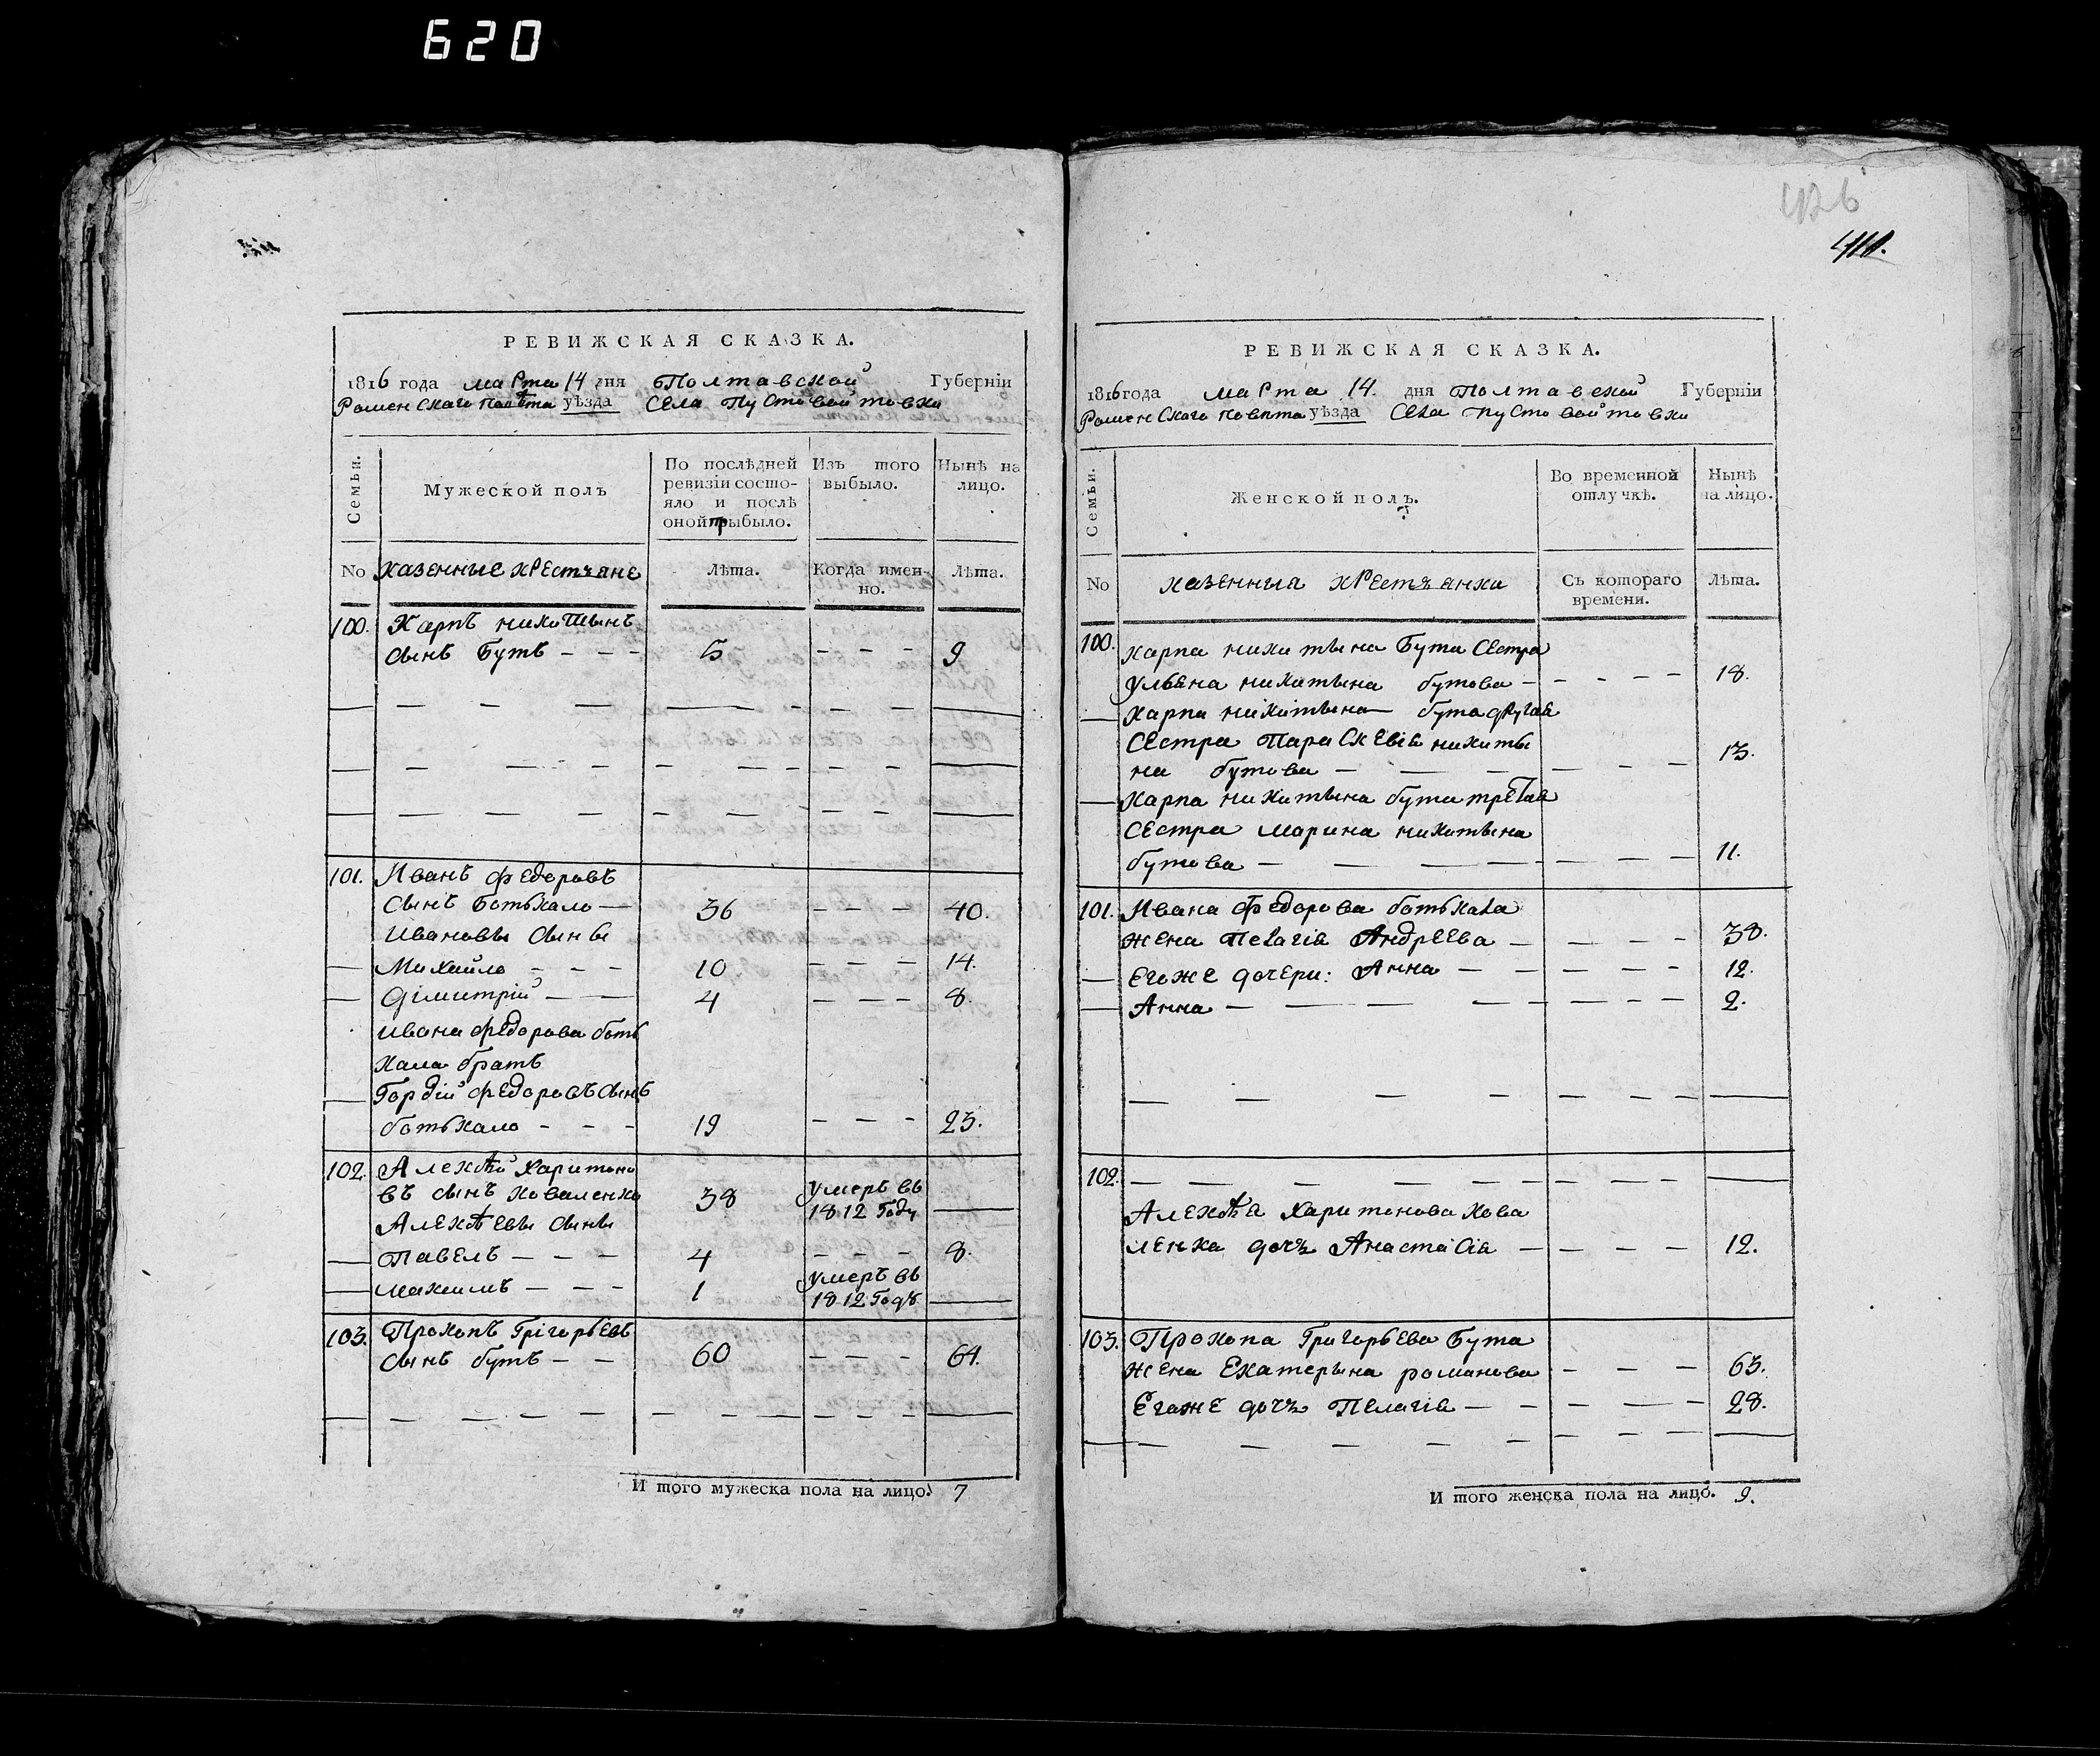 620
426
РЕВИЖСКАЯ СКАЗКА.
1816 года марта 14 дня Полтавской Губерніи
Роменскаго Повѣта уѣзда Села Пустовойтовки
Семьи.
Мужеской полъ
По послѣдней ревизіи состо-
яло и послѣ
оной прыбыло.
Изъ того выбыло.
Нынѣ на лицо.
No Казенные крестъяне Лѣта. Когда имен-
но. Лѣта.
100. Карпъ никитынъ
сынъ Бутъ - - - 5 - - - 9
101. Иванъ федоровъ
сынъ Ботькало — 36 - - - 40.
Ивановы сыны
— Михайло - - - 10 - - - 14.
— Димитрій — — 4 - - - 8.
Ивана федорова боть
кала братъ
— Гордій федоровъ сынъ
ботькало - - - 19 - - - 23.
102. Алексѣй Харитоно
въ сынъ коваленко 38 умеръ въ
1812 Году —
Алексѣевы сыны
— Павелъ — - — 4 - - - 8.
— максимъ — - - 1 умеръ въ
1812 Годѣ —
103. Прокопъ Грігорьевъ
сынъ бутъ - — 60 - - - 64.
И того мужеска пола на лицо. 7
РЕВИЖСКАЯ СКАЗКА.
1816 года марта 14. дня Полтавской Губерніи
Роменскаго Повѣта уѣзда Села пустовойтовки
Семьи.
Женской полъ.
Во временной отлучкѣ.
Нынѣ на лицо.
No казенныя крестъянки Съ котораго
времени. Лѣта.
100. карпа никитына Бута Сестра
ульяна никитына бутова - - - - - 18.
— карпа никитына бута другая
Сестра Параскевія никиты
на бутова — — - — - - 13.
— карпа никитына бута третая
Сестра марина никитына
бутова — — — — - — - — 11.
101. Ивана Федорова ботькала
жена Пелагія Андреева — — - — - 38.
— Егоже дочери: Анна — — — - - 12.
— Анна — — — — - — - - 2.
102.
Алексѣя Харитонова кова
ленка дочъ Анастасія — — - — 12.
103. Прокопа Григорьева Бута
жена Екатерына романова - - — 63.
Егоже дочъ Пелагія — - — — - 28.
И того женска пола на лицо. 9.